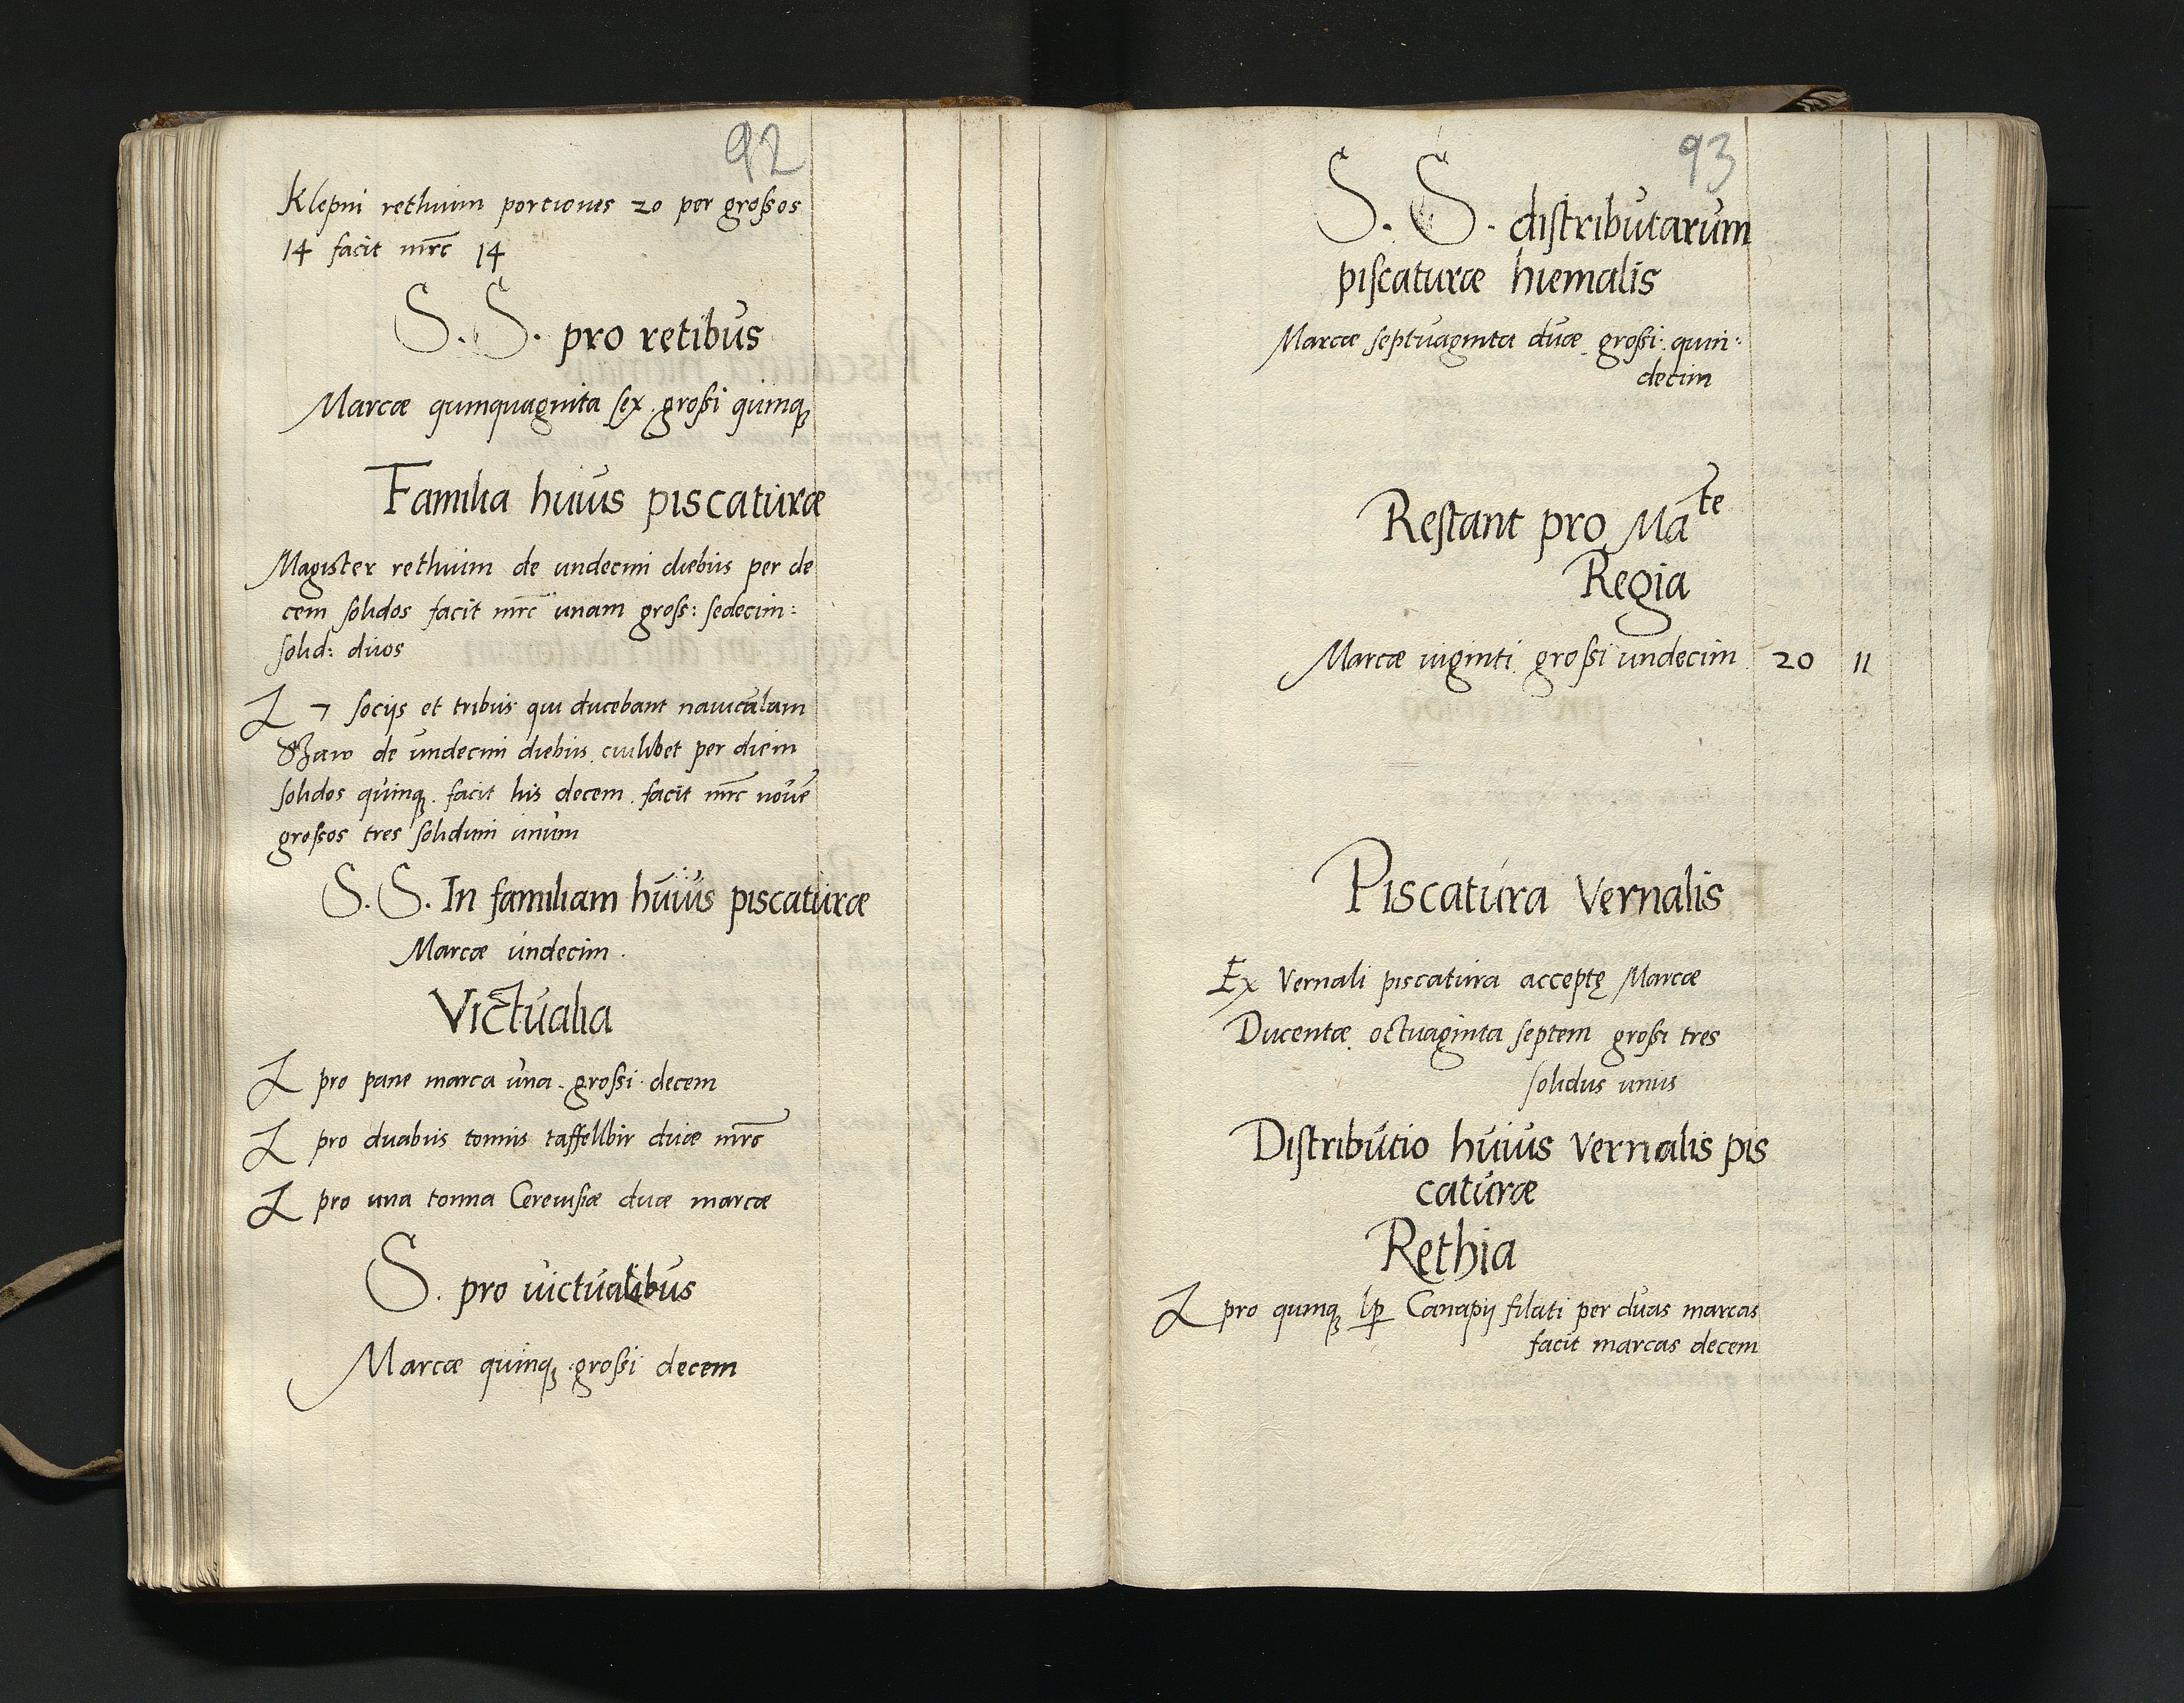 92
Klepni rethium portiones 20 per grossos
14 facit mrc 14
S. S. pro retibus
Marcæ quinquaginta sex. grossi quinq
Familia huius piscaturæ
Magister rethium de undecim diebus per de
cem solidos facit mrc unam gross: sedecim:
solid: duos
socijs et tribus qui ducebant nauiculam
de undecim diebus. cuilibet per diem
solidos quinq. facit his decem. facit mrc nouē
grossos tres solidum unum
S. S. In familiam huius piscaturæ
Marcæ undecim.
Victualia
pro pane marca una. grossi decem
pro duabus tonnis taffellbir duæ mrc
pro una tonna Cereuisiæ duæ marcæ
S. pro uictualibus
Marcæ quinq grossi decem
93
S. S. distributarum
piscaturæ hiemalis
Marcæ septuaginta duæ grossi quin:
decim
Restant pro Ma te
Regia
Marcæ uiginti grossi undecim 20 11
Piscatura Vernalis
Ex Vernali piscatura acceptę Marcæ
Ducentæ octuaginta septem grossi tres
solidus unus
Distributio huius Vernalis pis
caturæ
Rethia
pro quinq lp Canapij filati per duas marcas
facit marcas decem